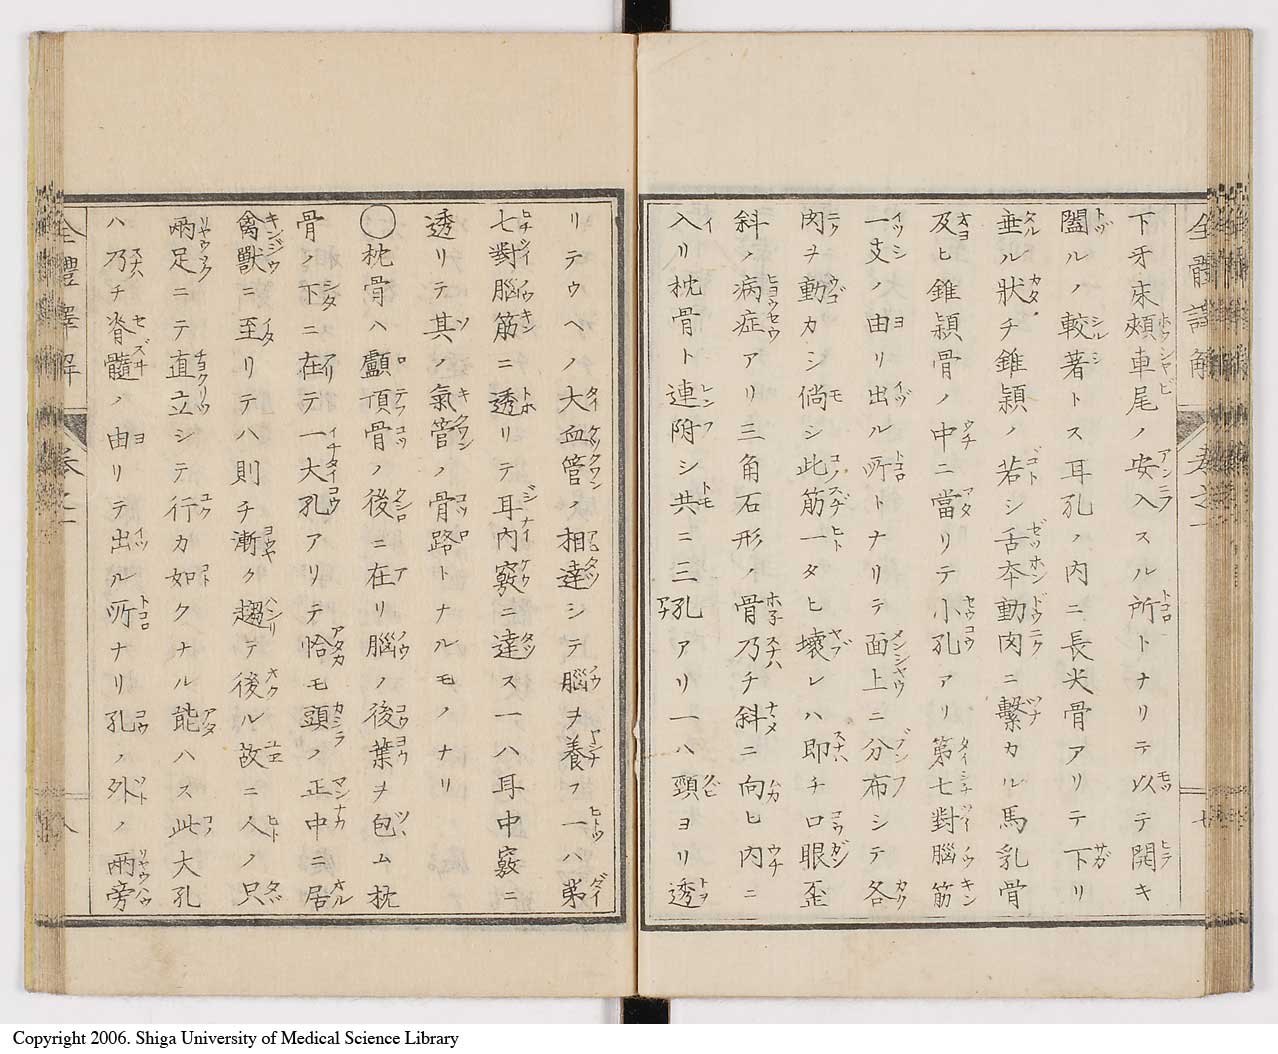 下牙床頰車尾ノ安入スル所トナリテ以テ開キ
闔ルノ較著トス耳孔ノ内ニ長尖骨アリテ下リ
垂ル狀チ錐穎ノ若シ舌夲動肉ニ繫カル馬乳骨
及ヒ錐穎骨ノ中ニ當リテ小孔アリ第七對腦筋
一支ノ由リ出ル所トナリテ面上ニ分布シテ各
肉ヲ動カシ倘シ此筋一タヒ壞レハ即チ口眼歪
斜ノ病症アリ三角石形ノ骨乃チ斜ニ向ヒ内ニ
入リ枕骨ト連附シ共ニ三孔アリ一ハ頸ヨリ透
リテウヘノ大血管ノ相達シテ腦ヲ養フ一ハ第
七對腦筋ニ透リテ耳内竅ニ達ス一ハ耳中竅ニ
透リテ其ノ氣管ノ骨路トナルモノナリ
○枕骨ハ顱頂骨ノ後ニ在リ腦ノ後葉ヲ包ム枕
骨ハ下ニ在テ一大孔アリテ恰モ頭ノ正中ニ居
禽獸ニ至リテハ則チ漸ク趨テ後ル故ニ人ノ只
兩足ニテ直立シテ行カ如クナル能ハス此大孔
ハ乃チ脊髓ノ由リテ出ル所ナリ孔ノ外ノ兩旁
全體譯解 卷之一 八
Copyright 2006. Shiga University of Medical Science Library